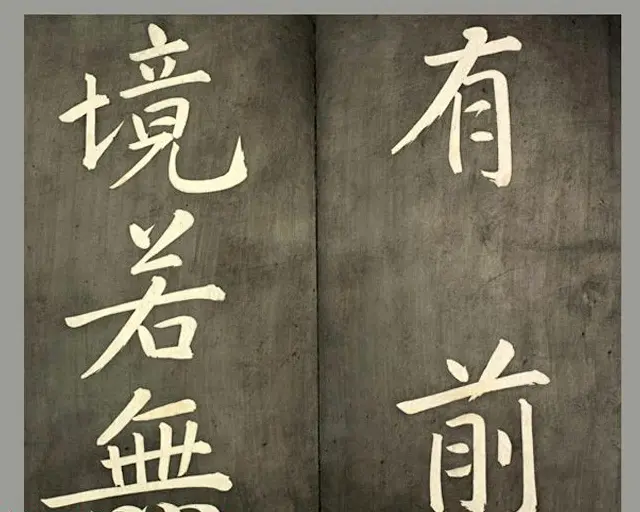 有前
境若無